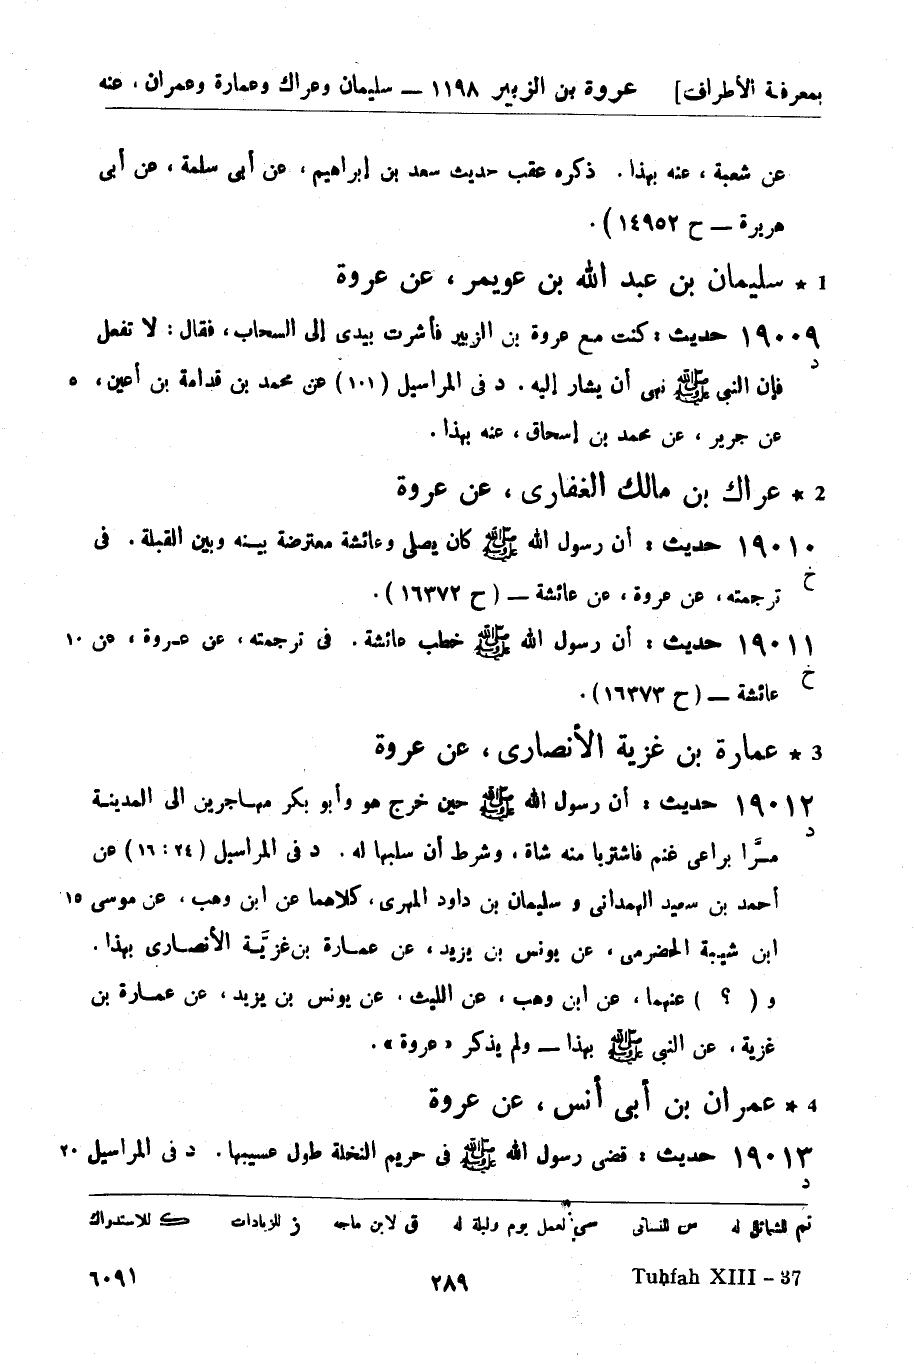 بمعرفة الأطراف] عروة بن الزبير ١١٩٨ — سليمان وعراك وعمارة وعمران ، عنه
عن شعبة ، عنه بهذا . ذكره عقب حديث سعد بن إبراهيم ، عن أبى سلمة ، عن أبى
هريرة — ح ١٤٩٥٢ ) .
1 * سليمان بن عبد الله بن عويمر ، عن عروة
١٩٠٠٩ حديث : كنت مع عروة بن الزبير فأشرت بيدى إلى السحاب ، فقال : لا تفعل
د
فإن النبي ﷺ نهى أن يشار إليه . د فى المراسيل ( ١٠١ ) عن محمد بن قدامة بن أعين ، ٥
عن جرير ، عن محمد بن إسحاق ، عنه بهذا .
2 * عراك بن مالك الغفارى ، عن عروة
١٩٠١٠ حديث : أن رسول الله ﷺ كان يصلي وعائشة معترضة بينه وبين القبلة . فى
خ
ترجمته ، عن عروة ، عن عائشة — ( ح ١٦٣٧٢ ) .
١٩٠١١ حديث : أن رسول الله ﷺ خطب عائشة . فى ترجمته ، عن عروة ، عن ١٠
خ
عائشة — ( ح ١٦٣٧٣ ) .
3 * عمارة بن غزية الأنصارى ، عن عروة
١٩٠١٢ حديث : أن رسول الله ﷺ حين خرج هو وأبو بكر مهاجرين الى المدينة
د
مرَّا براعى غنم فاشتريا منه شاة ، وشرط أن سلبها له . د فى المراسيل ( ٢٤ : ١٦ ) عن
أحمد بن سعيد الهمدانى و سليمان بن داود المهرى ، كلاهما عن ابن وهب ، عن موسى ١٥
ابن شيبة الحضرمى ، عن يونس بن يزيد ، عن عمارة بن غزيَّة الأنصارى بهذا .
و ( ؟ ) عنهما ، عن ابن وهب ، عن الليث ، عن يونس بن يزيد ، عن عمارة بن
غزية ، عن النبي ﷺ بهذا — ولم يذكر « عروة » .
4 * عمران بن أبى أنس ، عن عروة
١٩٠١٣ حديث : قضى رسول الله ﷺ فى حريم النخلة طول عسيبها . د فى المراسيل ٢٠
د
تم للشمائل له س للنسائى سي لعمل يوم وليلة له ق لابن ماجه ز للزيادات ك للاستدراك
Tuḥfah XIII – 37 ٢٨٩ ٦٠٩١